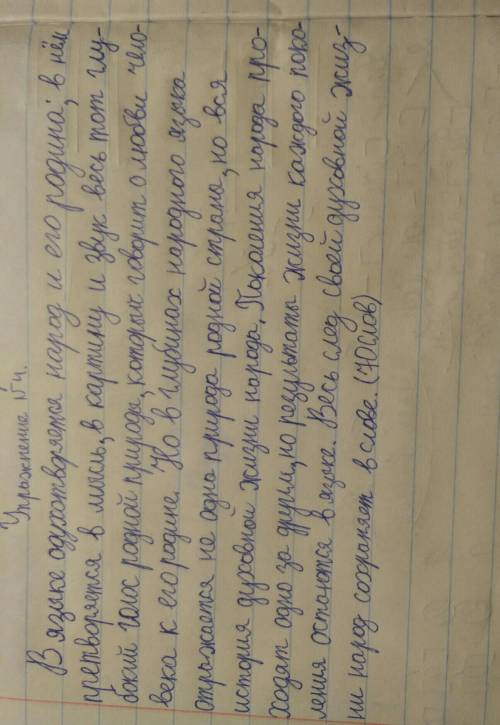 Упражнение №4.
В языке одухотворяется народ и его родина; в нём
претворяется в мысль, в картину и звук весь тот глу-
бокий голос родной природы, который говорит о любви чело-
века к его родине. Но в глубинах народного языка
отражается не одна природа родной страны, но вся
история духовной жизни народа. Поколения народа про-
ходят одно за другим, но результаты жизни каждого поко-
ления остаются в языке. Весь след своей духовной жиз-
ни народ сохраняет в слове. (70 слов)